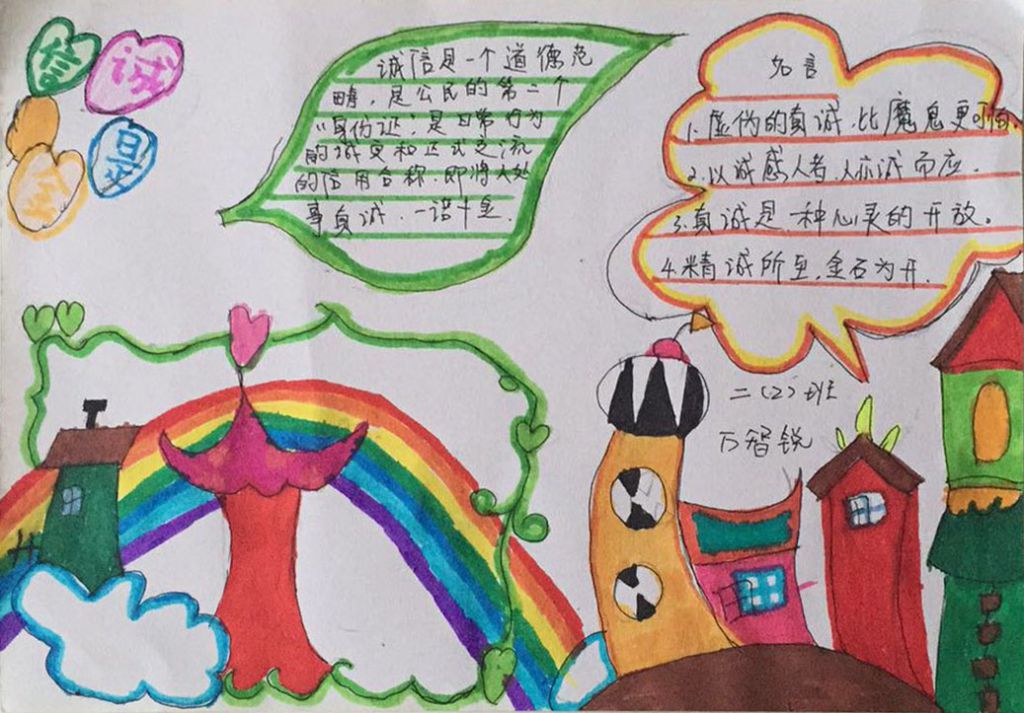 诚
是
诚信是一个道德范
畴，是公民的第二个
“身份证”，是日常行为
的诚实和正式交流
的信用合称，即将人处
事真诚、一诺千金.
名言
1.虚伪的真诚,比魔鬼更可怕.
2.以诚感人者,人亦诚而应.
3.真诚是一种心灵的开放。
4.精诚所至,金石为开.
二(2)班
万智锐